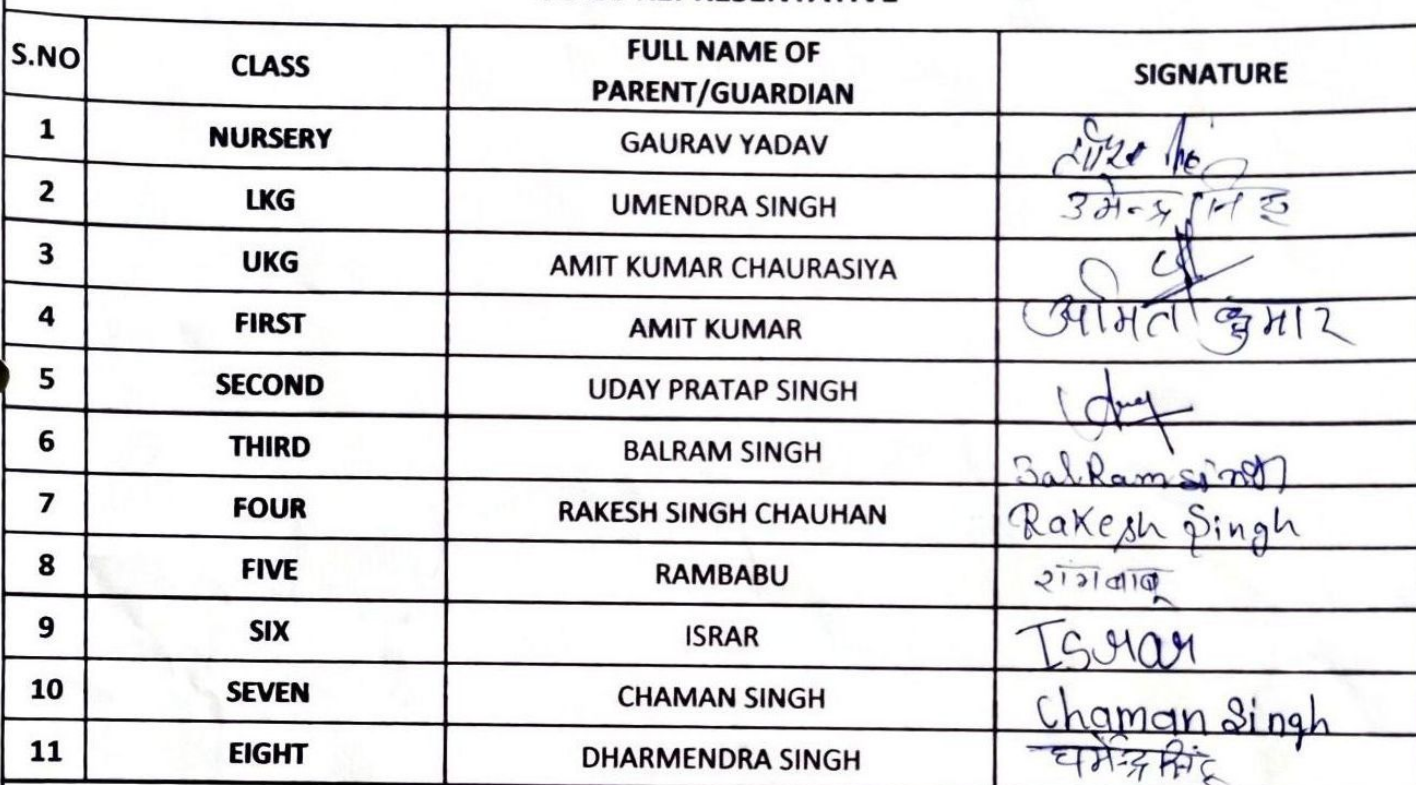 S.NO CLASS FULL NAME OF PARENT/GUARDIAN SIGNATURE
1 NURSERY GAURAV YADAV
2 LKG UMENDRA SINGH उमेन्द्र सिंह
3 UKG AMIT KUMAR CHAURASIYA
4 FIRST AMIT KUMAR अमित कुमार
5 SECOND UDAY PRATAP SINGH
6 THIRD BALRAM SINGH BalRam singh
7 FOUR RAKESH SINGH CHAUHAN Rakesh Singh
8 FIVE RAMBABU रामबाबू
9 SIX ISRAR Israr
10 SEVEN CHAMAN SINGH Chaman Singh
11 EIGHT DHARMENDRA SINGH धर्मेन्द्र सिंह